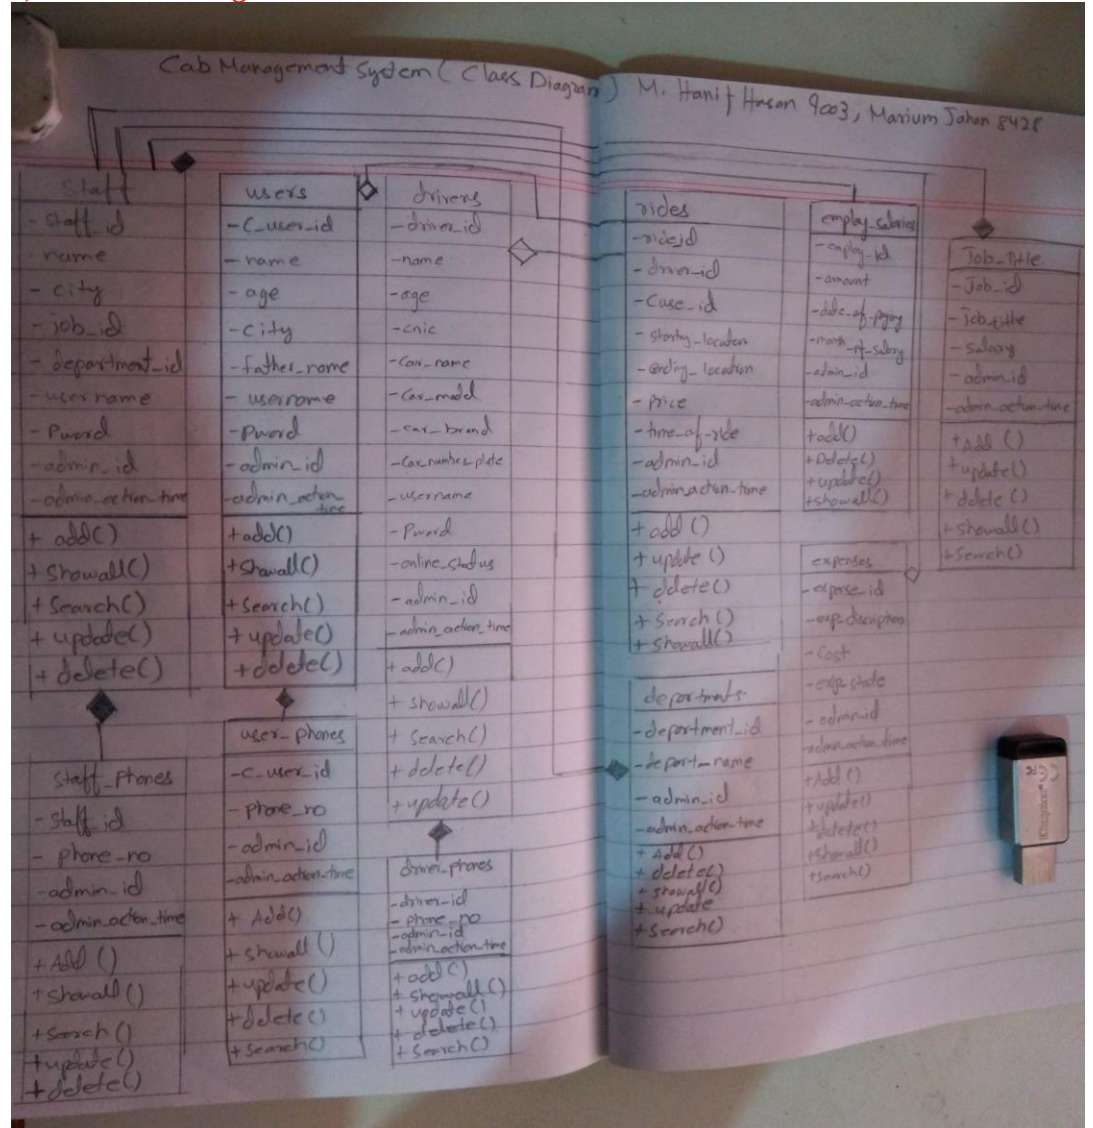 Cab Management System ( Class Diagram ) M. Hanif Hasan 9003, Marium Jahan 8428
Staff
- staff_id
- name
- city
- job_id
- department_id
- username
- Pword
- admin_id
- admin_action_time
+ add()
+ Showall()
+ Search()
+ update()
+ delete()
staff_phones
- staff_id
- phone_no
- admin_id
- admin_action_time
+ Add ()
+ Showall ()
+ Search ()
+ update()
+ delete()
users
- C_user_id
- name
- age
- City
- father_name
- username
- Pword
- admin_id
- admin_action_
time
+ add()
+ Showall()
+ Search()
+ update()
+ delete()
user_phones
- C_user_id
- phone_no
- admin_id
- admin_action_time
+ Add()
+ Showall ()
+ update()
+ delete()
+ Search()
drivers
- driver_id
- name
- age
- cnic
- Car_name
- Car_model
- car_brand
- Car_number_plate
- username
- Pword
- online_status
- admin_id
- admin_action_time
+ add()
+ showall()
+ Search()
+ delete()
+ update()
driver_phones
- driver_id
- phone_no
- admin_id
- admin_action_time
+ add()
+ showall()
+ update()
+ delete()
+ Search()
rides
- ride_id
- driver_id
- Cuse_id
- starting_location
- ending_location
- Price
- time_of_ride
- admin_id
- admin_action_time
+ add ()
+ update ()
+ delete()
+ Search ()
+ Showall()
departments
- department_id
- depart_name
- admin_id
- admin_action_time
+ Add()
+ delete()
+ showall()
+ update
+ Search()
employ_salaries
- employ_id
- amount
- date_of_paying
- month_of_salary
- admin_id
- admin_action_time
+ add()
+ Delete()
+ update()
+ showall()
expenses
- expense_id
- exp_discription
- Cost
- admin_id
- admin_action_time
+ Add ()
+ update()
+ delete()
+ Showall()
+ Search()
Job_title
- Job_id
- job_title
- Salary
- admin_id
- admin_action_time
+ Add ()
+ update()
+ delete ()
+ Showall()
+ Search()